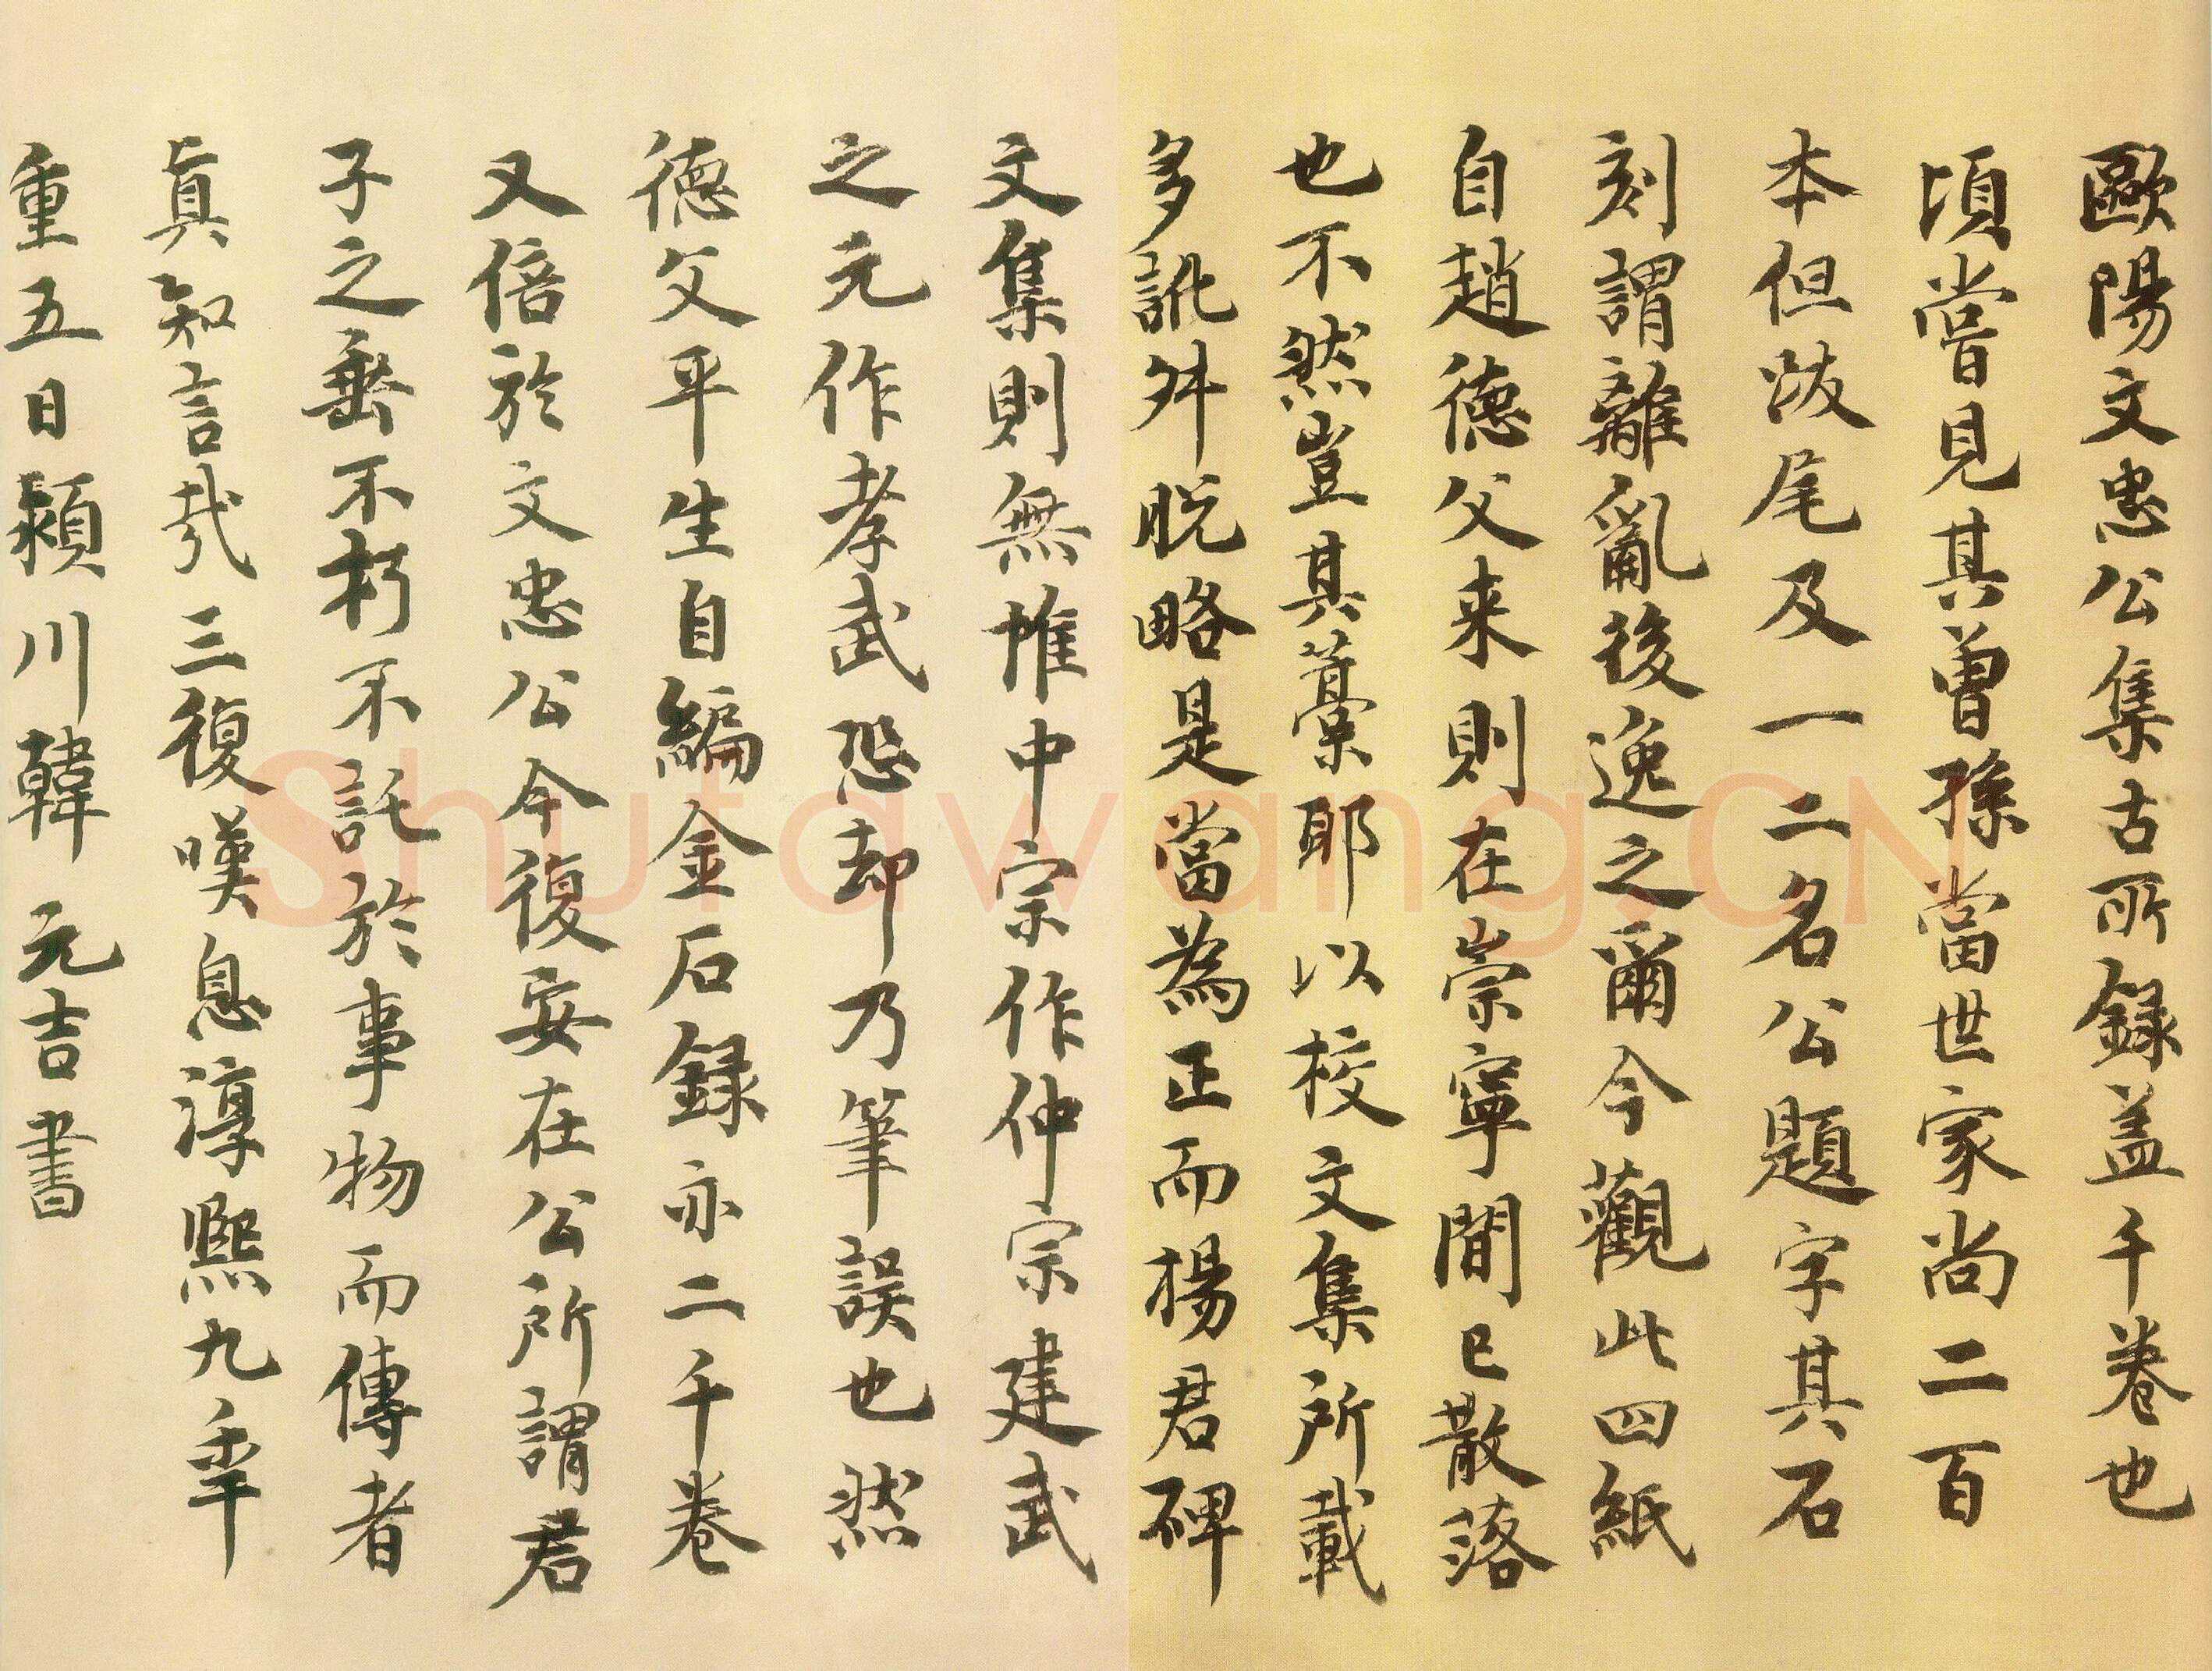 歐陽文忠公集古所録盖千卷也
頃嘗見其曽孫當世家尚二百
本但䟦尾及一二名公題字其石
刻謂離亂後逸之爾今觀此四紙
自趙德父来則在崇寧間已散落
也不然豈其藁耶以校文集所載
多訛舛脱略是當為正而楊君碑
文集則無惟中宗作仲宗建武
之元作孝武恐却乃筆誤也然
德父平生自編金石録亦二千卷
又倍於文忠公今復安在公所謂君
子之垂不朽不託於事物而傳者
真知言哉三復嘆息淳熙九年
重五日潁川韓元吉書
Shufawang.CN